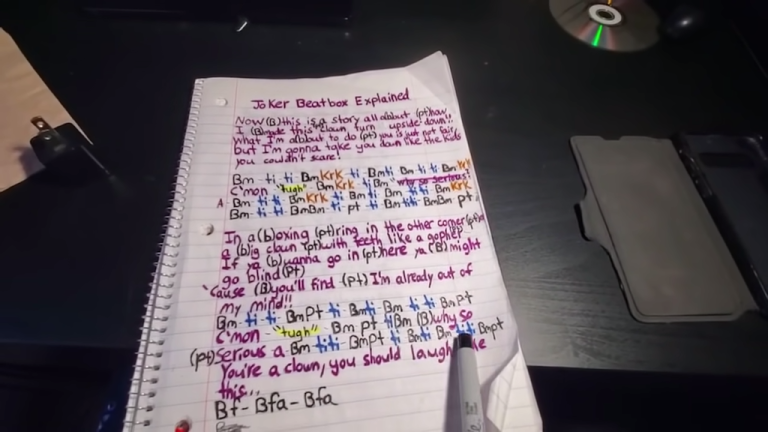 Joker Beatbox Explained
Now (B)this is a story all about (pt)how
I (B)made this clown turn upside down!!
What I'm about to do (pt) you is just not fair
but I'm gonna take you down like the kids
you couldn't scare!
Bm ti ti BmKrK ti Bmti Bm ti ti BmKrK
C'mon "tugh" BmKrK ti Bm "why so serious?
A Bm ti ti BmKrK ti Bmti ti Bm ti ti BmKrK
Bm ti ti BmBm ti pt ti Bm ti ti BmBm pt
In a (b)oxing (pt)ring in the other corner(pt)
a (b)ig clown (pt)with teeth like a gopher
If ya (b)wanna go in (pt)here ya (B)might
go blind(Pt)
'Cause (B)you'll find (pt) I'm already out of
my mind!!
Bm ti ti BmPt ti Bmti Bm ti ti BmPt
C'mon "tugh" Bm pt ti Bm (B)why so
(pt)Serious a Bm ti ti Bmpt ti Bmti Bm ti ti Bmpt
You're a clown, you should laugh
this...
Bf- Bfa- Bfa